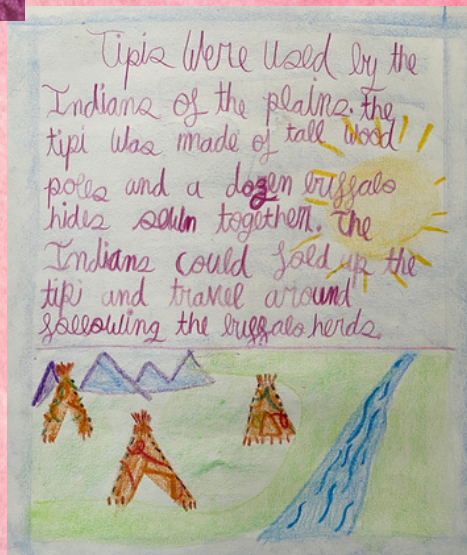 Tipis Were Used by the
Indians of the plains. the
tipi was made of tall wood
poles and a dozen buffalo
hides sewn together. The
Indians could fold up the
tipi and travel around
following the buffalo herds.